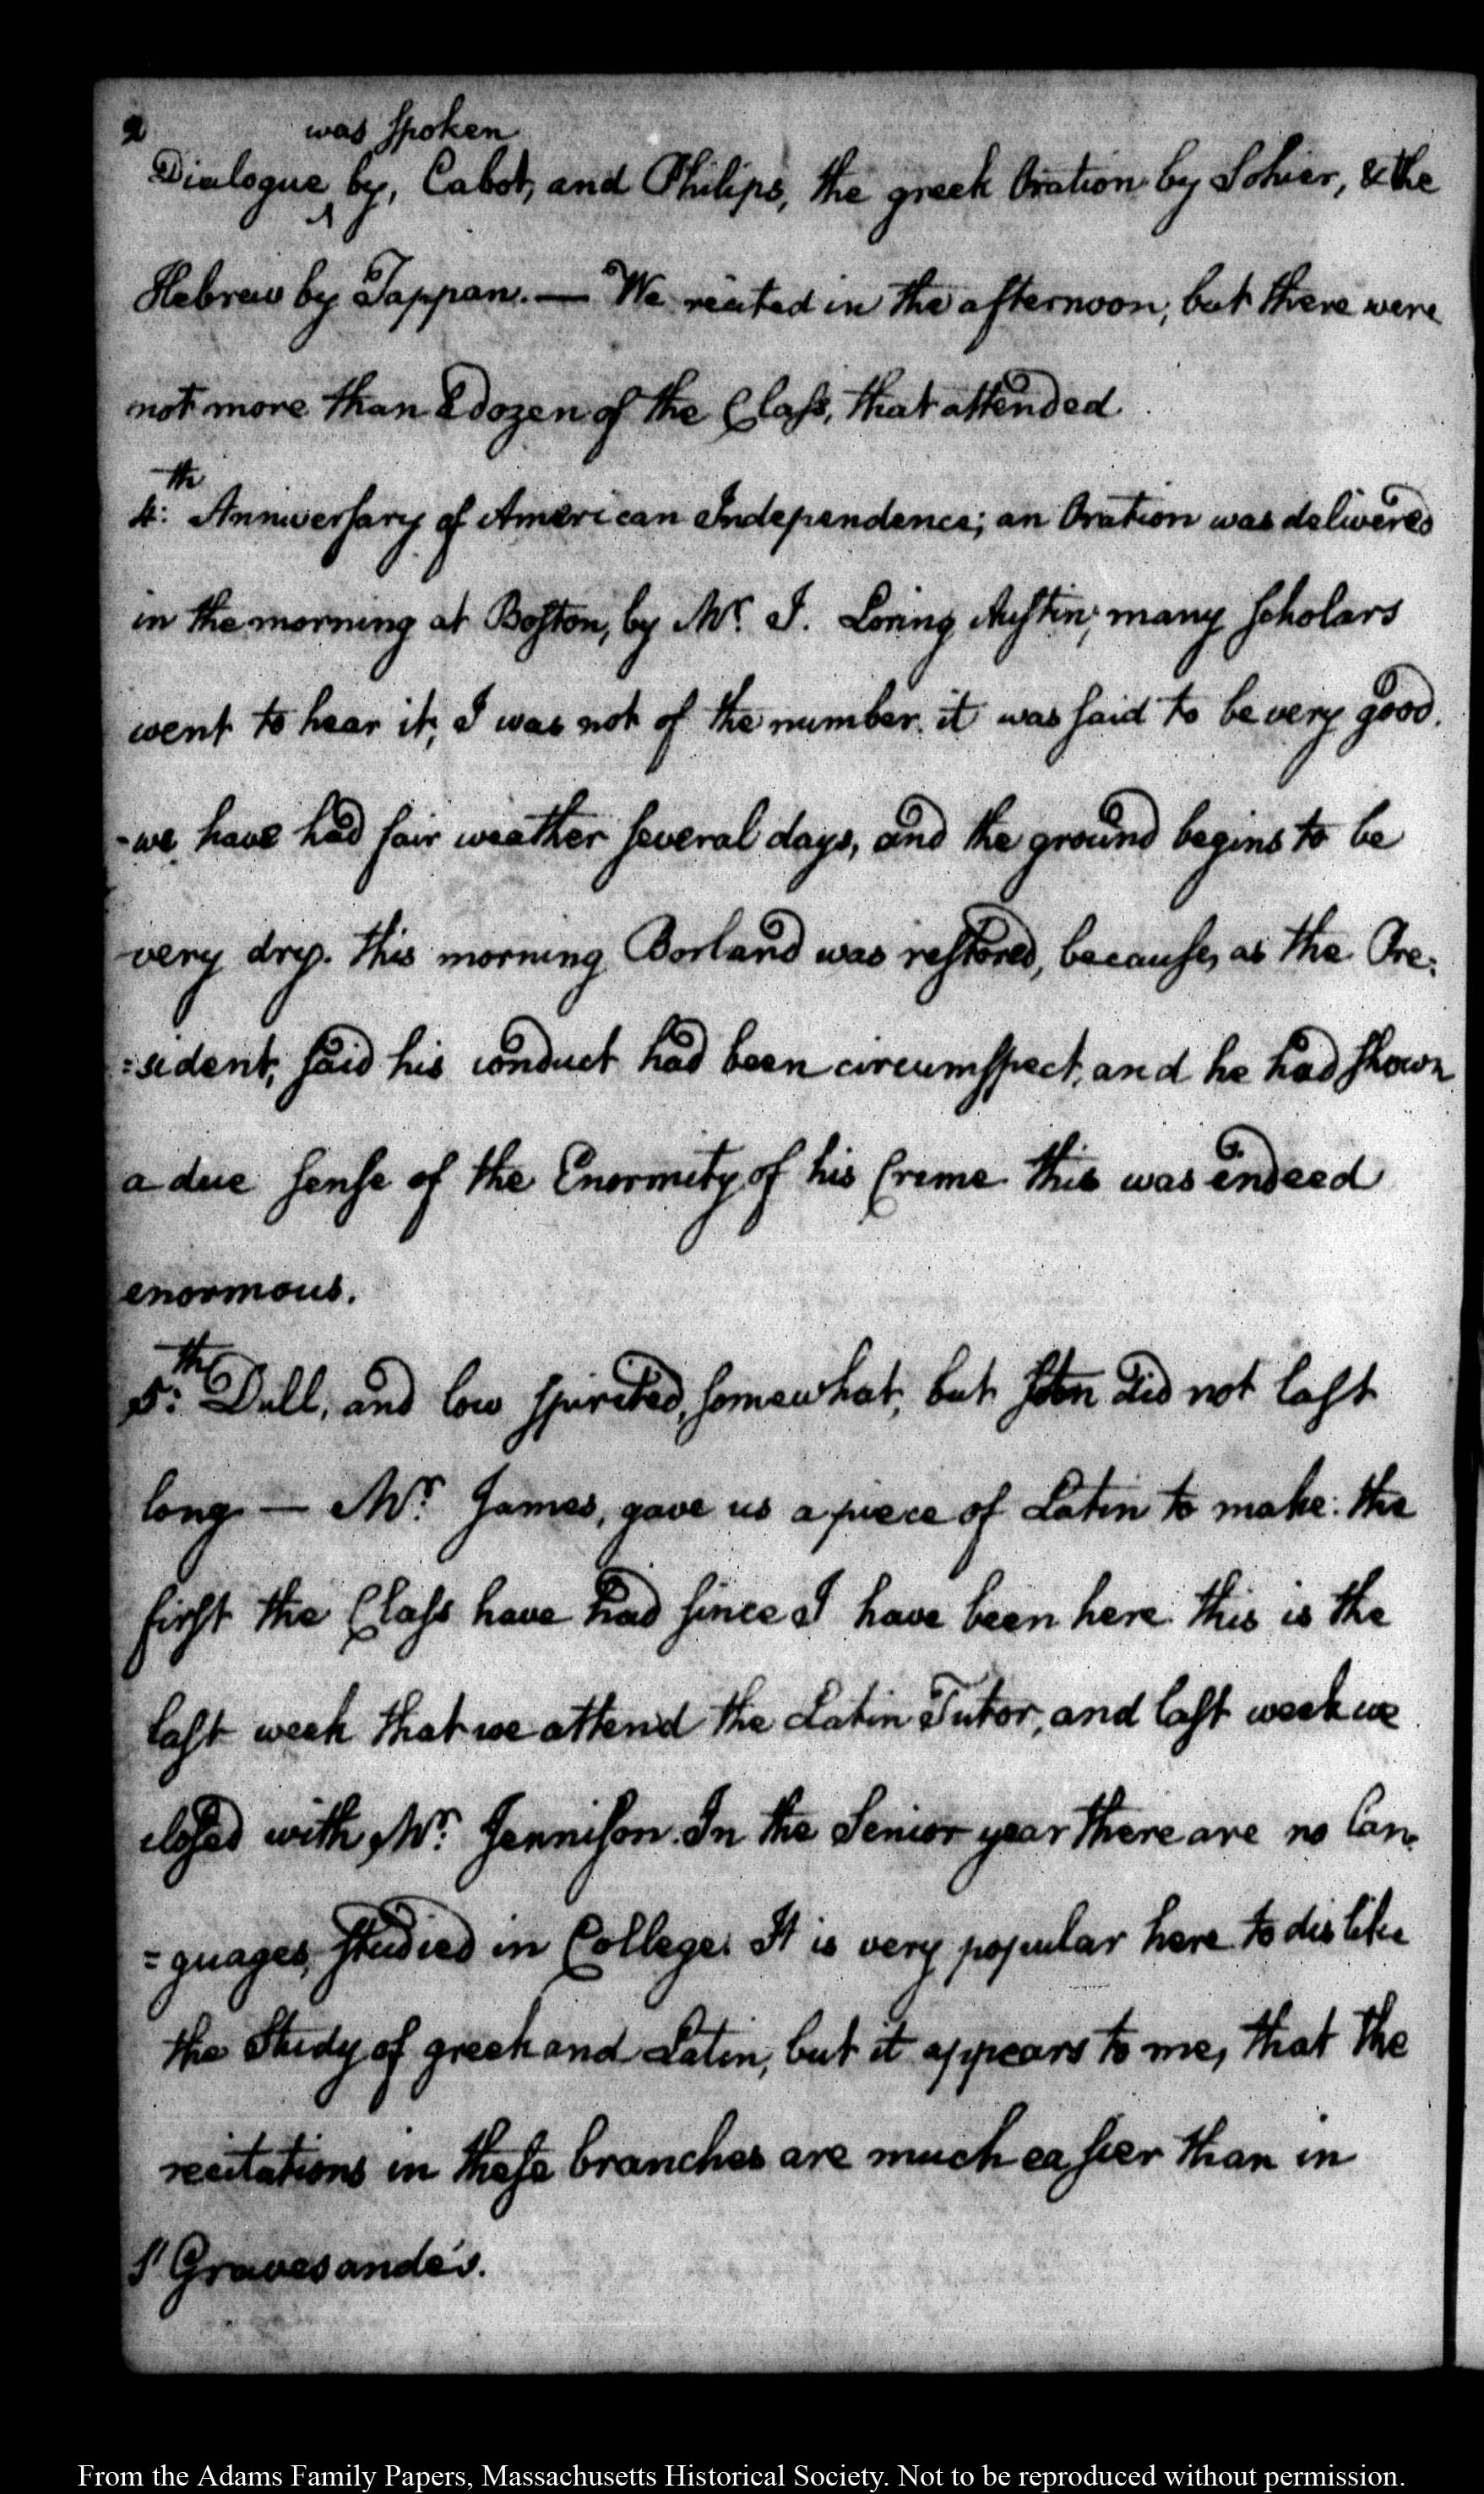 2
was spoken
Dialogue by, Cabot, and Philips, the greek Oration by Sohier, & the
Hebrew by Tappan. — We recited in the afternoon, but there were
not more than a dozen of the Class, that attended.
4:th Anniversary of American Independence; an Oration was delivered
in the morning at Boston, by Mr. J. Loring Austin; many scholars
went to hear it, I was not of the number. it was said to be very good.
-we have had fair weather several days, and the ground begins to be
very dry. this morning Borland was restored, because, as the Pre:
:sident, said his conduct had been circumspect, and he had shown
a due sense of the Enormity of his Crime this was indeed
enormous.
5:th Dull, and low spirited, somewhat, but it did not last
long — Mr. James, gave us a piece of Latin to make: the
first the Class have had since I have been here this is the
last week that we attend the Latin Tutor, and last week we
closed with Mr. Jennison. In the Senior year there are no lan:
=guages, studied in College. It is very popular here to dislike
the Study of greek and Latin, but it appears to me, that the
recitations in these branches are much easier than in
s'Gravesande's.
From the Adams Family Papers, Massachusetts Historical Society. Not to be reproduced without permission.